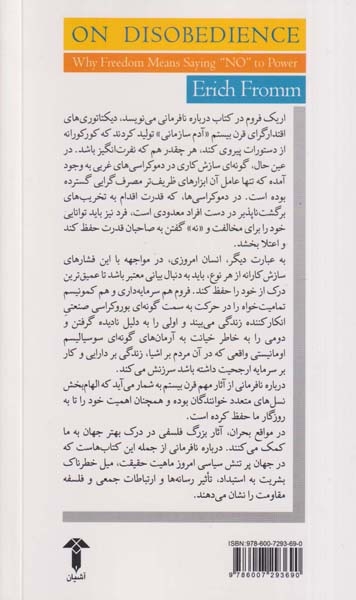 ON DISOBEDIENCE
Why Freedom Means Saying “NO” to Power
Erich Fromm
اریک فروم در کتاب درباره نافرمانی می‌نویسد، دیکتاتوری‌های
اقتدارگرای قرن بیستم «آدم سازمانی» تولید کردند که کورکورانه
از دستورات پیروی کند، هر چقدر هم که نفرت‌انگیز باشد. در
عین حال، گونه‌ای سازش‌کاری در دموکراسی‌های غربی به وجود
آمده که تنها عامل آن ابزارهای ظریف‌تر مصرف‌گرایی گسترده
بوده است. در دموکراسی‌ها، که قدرت اقدام به تخریب‌های
برگشت‌ناپذیر در دست افراد معدودی است، فرد نیز باید توانایی
خود را برای مخالفت و «نه» گفتن به صاحبان قدرت حفظ کند
و اعتلا بخشد.
به عبارت دیگر، انسان امروزی، در مواجهه با این فشارهای
سازش‌کارانه از هر نوع، باید به دنبال بیانی معتبر باشد تا عمیق‌ترین
درک از خود را حفظ کند. فروم هم سرمایه‌داری و هم کمونیسم
تمامیت‌خواه را در حرکت به سمت گونه‌ای بوروکراسی صنعتیِ
انکارکننده زندگی می‌بیند و اولی را به دلیل نادیده گرفتن و
دومی را به خاطر خیانت به آرمان‌های گونه‌ای سوسیالیسم
اومانیستی واقعی که در آن مردم بر اشیا، زندگی بر دارایی و کار
بر سرمایه ارجحیت داشته باشد سرزنش می‌کند.
درباره نافرمانی از آثار مهم قرن بیستم به شمار می‌آید که الهام‌بخش
نسل‌های متعدد خوانندگان بوده و همچنان اهمیت خود را تا به
روزگار ما حفظ کرده است.
در مواقع بحران، آثار بزرگ فلسفی در درک بهتر جهان به ما
کمک می‌کنند. درباره نافرمانی از جمله این کتاب‌هاست که
در جهان پر تنش سیاسی امروز ماهیت حقیقت، میل خطرناک
بشریت به استبداد، تأثیر رسانه‌ها و ارتباطات جمعی و فلسفه
مقاومت را نشان می‌دهند.
ISBN: 978-600-7293-69-0
9 786007 293690
آشیان